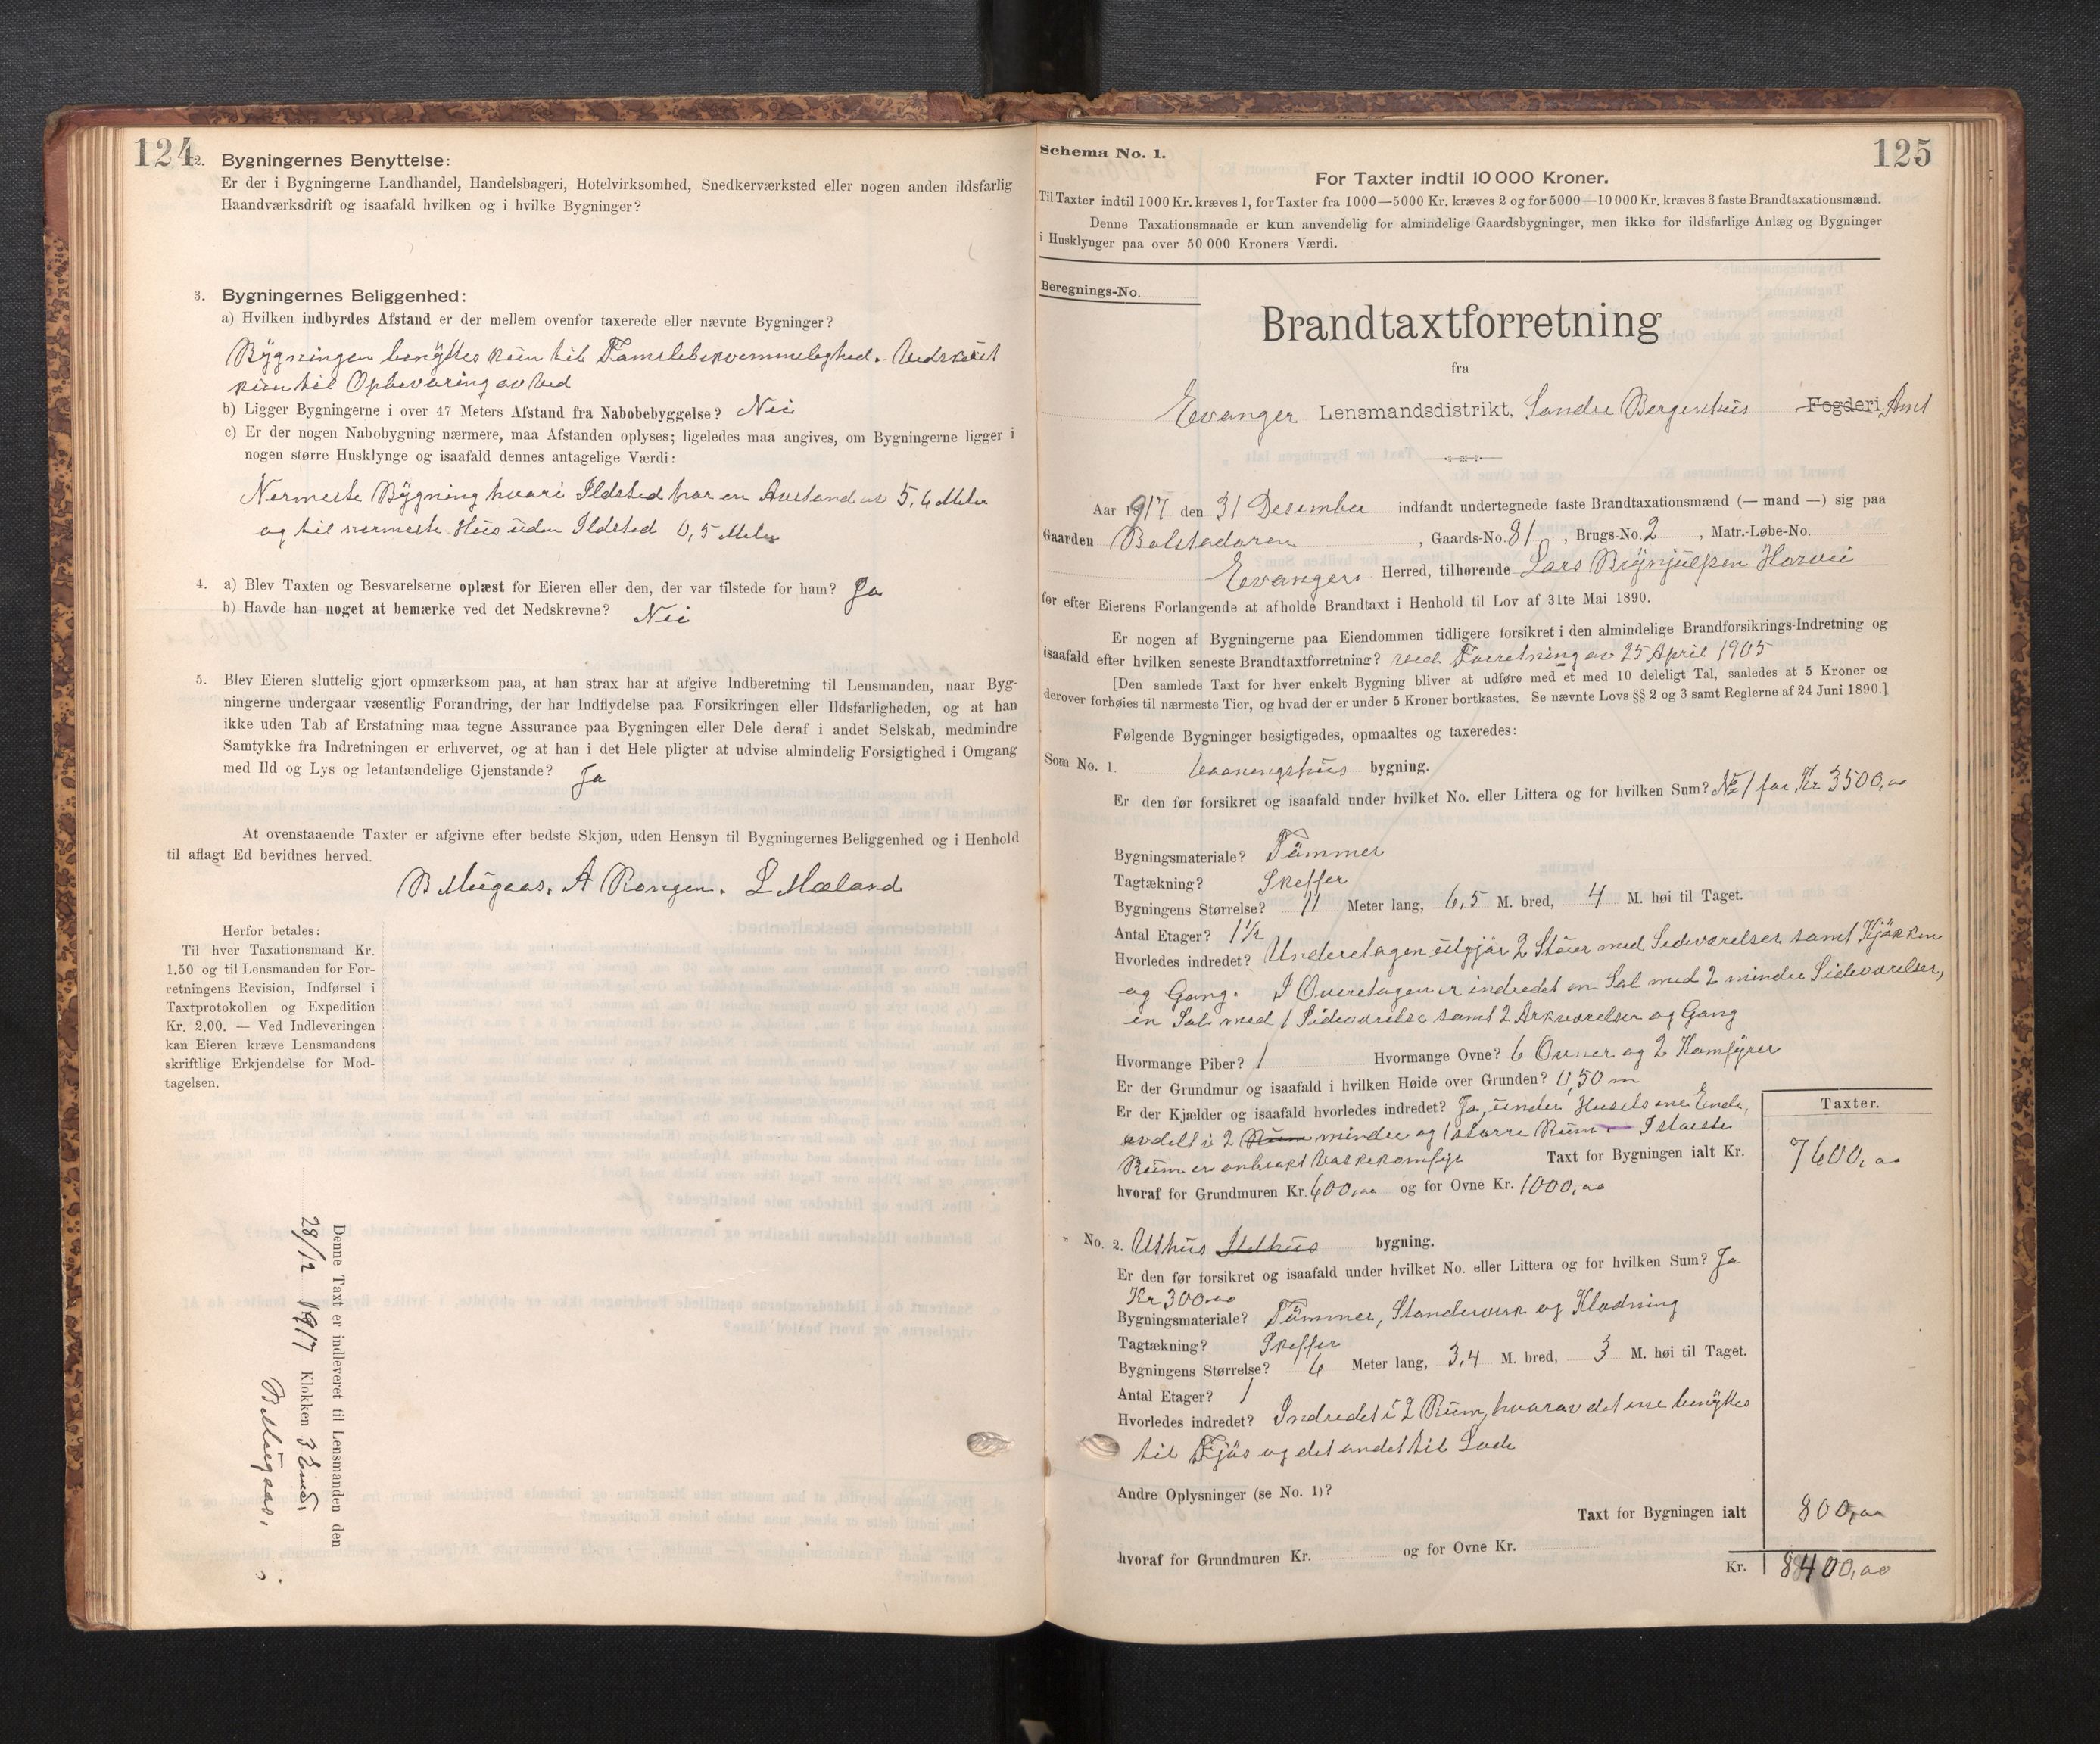 124
2. Bygningernes Benyttelse:
Er der i Bygningerne Landhandel, Handelsbageri, Hotelvirksomhed, Snedkerværksted eller nogen anden ildsfarlig
Haandværksdrift og isaafald hvilken og i hvilke Bygninger?
3. Bygningernes Beliggenhed:
a) Hvilken indbyrdes Afstand er der mellem ovenfor taxerede eller nævnte Bygninger?
Bygningen benyttes kun til Familebekvemmeleghed. Vedskjut
kun til Opbevaring av Ved
b) Ligger Bygningerne i over 47 Meters Afstand fra Nabobebyggelse? Nei
c) Er der nogen Nabobygning nærmere, maa Afstanden oplyses; ligeledes maa angives, om Bygningerne ligger i
nogen større Husklynge og isaafald dennes antagelige Værdi:
Nermeste Bygning hvori Ildsted har en Avstand av 5,6 Meter
og til nermeste Hus uden Ildsted 0,5 Meter
4. a) Blev Taxten og Besvarelserne oplæst for Eieren eller den, der var tilstede for ham? Ja
b) Havde han noget at bemærke ved det Nedskrevne? Nei
5. Blev Eieren sluttelig gjort opmærksom paa, at han strax har at afgive Indberetning til Lensmanden, naar Byg-
ningerne undergaar væsentlig Forandring, der har Indflydelse paa Forsikringen eller Ildsfarligheden, og at han
ikke uden Tab af Erstatning maa tegne Assurance paa Bygningen eller Dele deraf i andet Selskab, medmindre
Samtykke fra Indretningen er erhvervet, og at han i det Hele pligter at udvise almindelig Forsigtighed i Omgang
med Ild og Lys og letantændelige Gjenstande? Ja
At ovenstaaende Taxter er afgivne efter bedste Skjøn, uden Hensyn til Bygningernes Beliggenhed og i Henhold
til aflagt Ed bevidnes herved.
B Mugaas. A Rongen. L Mæland
Herfor betales:
Til hver Taxationsmand Kr.
1.50 og til Lensmanden for For-
retningens Revision, Indførsel i
Taxtprotokollen og Expedition
Kr. 2.00. — Ved Indleveringen
kan Eieren kræve Lensmandens
skriftlige Erkjendelse for Mod-
tagelsen.
Denne Taxt er indleveret til Lensmanden den
28/12 1917 Klokken 3 Emd.
B Mugaas.
125
Schema No. 1.
For Taxter indtil 10 000 Kroner.
Til Taxter indtil 1000 Kr. kræves 1, for Taxter fra 1000—5000 Kr. kræves 2 og for 5000—10 000 Kr. kræves 3 faste Brandtaxationsmænd.
Denne Taxationsmaade er kun anvendelig for almindelige Gaardsbygninger, men ikke for ildsfarlige Anlæg og Bygninger
i Husklynger paa over 50 000 Kroners Værdi.
Beregnings-No.
Brandtaxtforretning
fra
Evanger Lensmandsdistrikt, Søndre Bergenhus Fogderi Amt
Aar 1917 den 31 Desember indfandt undertegnede faste Brandtaxationsmænd (— mand —) sig paa
Gaarden Bolstadøren, Gaards-No. 81, Brugs-No. 2, Matr.-Løbe-No.
Evanger Herred, tilhørende Lars Brynjulfsen Horvei
for efter Eierens Forlangende at afholde Brandtaxt i Henhold til Lov af 31te Mai 1890.
Er nogen af Bygningerne paa Eiendommen tidligere forsikret i den almindelige Brandforsikrings-Indretning og
isaafald efter hvilken seneste Brandtaxtforretning? ved Forretning av 25 April 1905
[Den samlede Taxt for hver enkelt Bygning bliver at udføre med et med 10 deleligt Tal, saaledes at 5 Kroner og
derover forhøies til nærmeste Tier, og hvad der er under 5 Kroner bortkastes. Se nævnte Lovs §§ 2 og 3 samt Reglerne af 24 Juni 1890.]
Følgende Bygninger besigtigedes, opmaaltes og taxeredes:
Som No. 1. Vaaningshus bygning.
Er den før forsikret og isaafald under hvilket No. eller Littera og for hvilken Sum? No 1 for Kr 3500,00
Bygningsmateriale? Tømmer
Tagtækning? Skeffer
Bygningens Størrelse? 11 Meter lang, 6,5 M. bred, 4 M. høi til Taget.
Antal Etager? 1½
Hvorledes indredet? Underetagen utgjør 2 Stuer med Sideværelser samt Kjøkken
og Gang. I Overetagen er indredet en Sal med 2 mindre Sideværelser,
en Sal med 1 Sideværelse samt 2 Arkværelser og Gang
Hvormange Piber? 1 Hvormange Ovne? 6 Ovner og 2 Komfyrer
Er der Grundmur og isaafald i hvilken Høide over Grunden? 0,50 m
Er der Kjælder og isaafald hvorledes indredet? Ja, under Husets ene Ende,
avdelt i 2 Rum mindre og 1 større Rum. I største
Rum er anbrakt Vaskekomfyr Taxt for Bygningen ialt Kr.
hvoraf for Grundmuren Kr. 600,00 og for Ovne Kr. 1000,00
Taxter.
7600,00
" No. 2. Uthus Ildhus bygning.
Er den før forsikret og isaafald under hvilket No. eller Littera og for hvilken Sum? Ja
Kr 300,00
Bygningsmateriale? Tømmer, Standerverk og Klædning
Tagtækning? Skeffer
Bygningens Størrelse? 6 Meter lang, 3,4 M. bred, 3 M. høi til Taget.
Antal Etager? 1
Hvorledes indredet? Indredet i 2 Rum, hvorav det ene benyttes
til Fjøs og det andet til Lade
Andre Oplysninger (se No. 1)?
Taxt for Bygningen ialt 800,00
hvoraf for Grundmuren Kr. og for Ovne Kr.
Kr. 8400,00